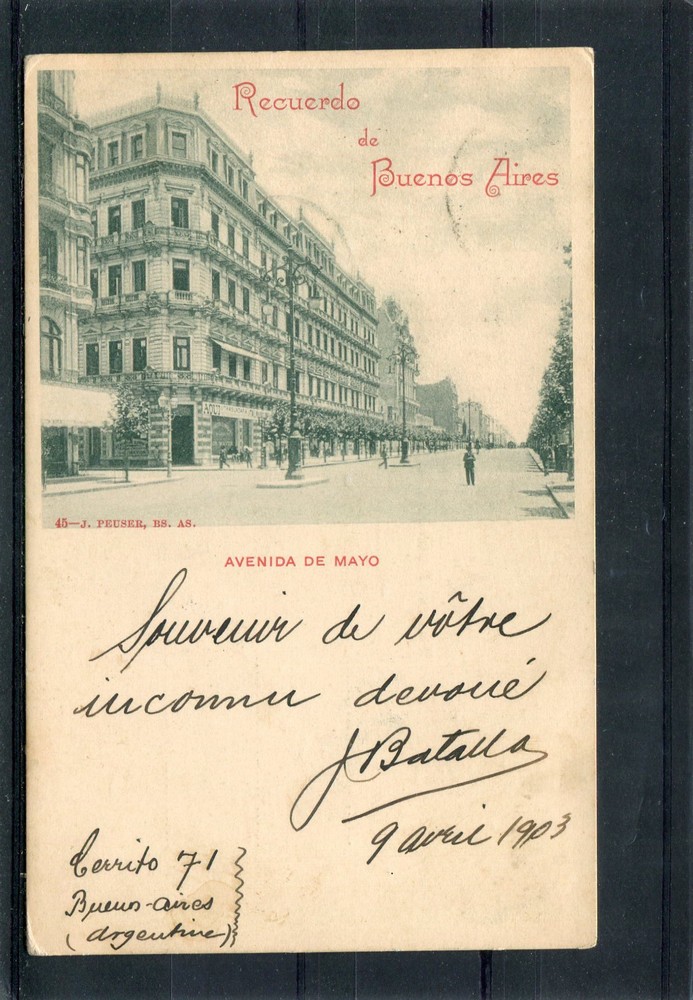 Recuerdo
de
Buenos Aires
45—J. PEUSER, BS. AS.
AVENIDA DE MAYO
Souvenir de vôtre
inconnu devoué
J Batalla
9 avril 1903
Cerrito 71
Buenos-aires
(argentine)